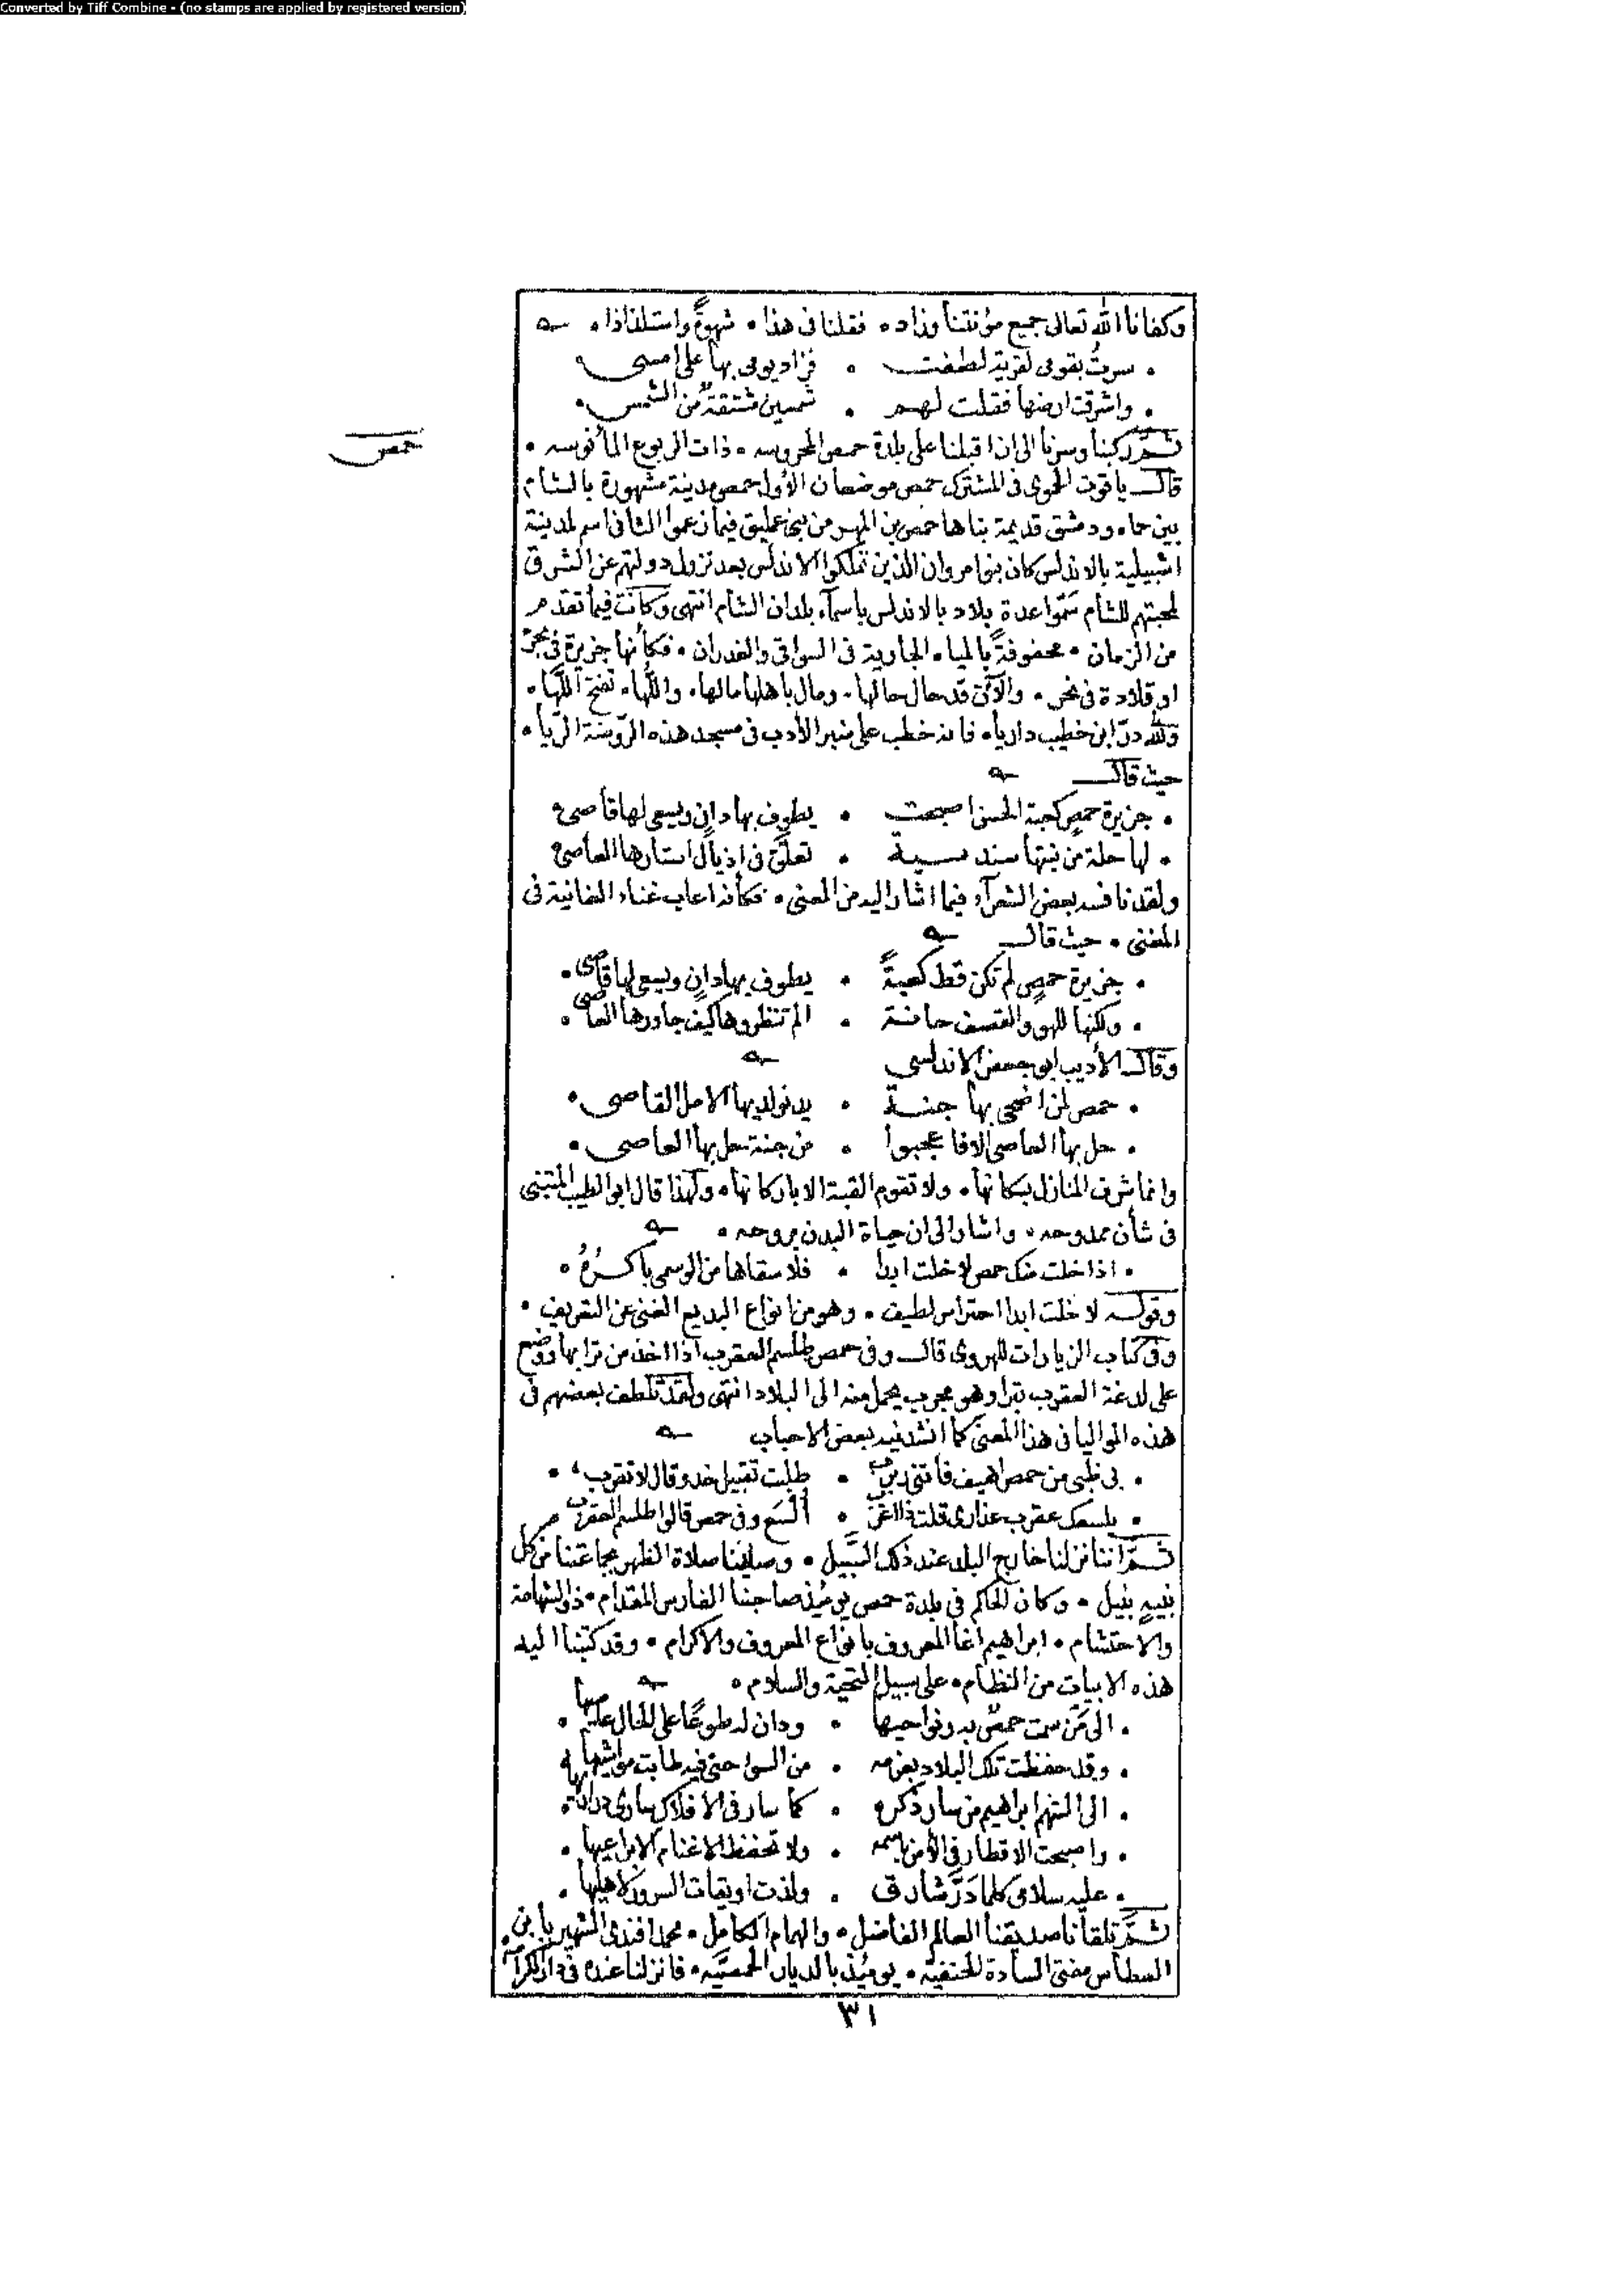 Converted by Tiff Combine - (no stamps are applied by registered version)
وكفانا الله تعالى جميع مؤنتنا وزاد ه فقلنا في هذا • شهوةً واستلذاذا •
• سريتُ بقومى لقرية لطفت • فزاد يومى بها على امسى
• واشرقت ارضها فقلت لهم • شمسين مشتقةٌ من الشمس •
ثم ركبنا وسرنا الى ان اقبلنا على بلدة حمص المحروسه • ذات الربوع المأنوسه •
حمص
قال ياقوت الحموى فى المشترك حمص موضعان الأول حمص مدينة مشهورة بالشام
بين حماه ودمشق قديمة بناها حمص بن المهر من بنى عمليق فيما زعموا الثانى اسم لمدينة
اشبيلية بالاندلس كان بنوا مروان الذين تملكوا الاندلس بعد نزول دولتهم عن الشرق
لمحبتهم للشام سمّوا عدة بلاد بالاندلس باسمآء بلدان الشام انتهى وكانت فيما تقدم
من الزمان • محفوفةً بالمياه الجارية فى السواقى والغدران • فكأنها جزيرة فى بحر
او قلادة فى نحر • والآن قد حال حالها • ومال باهلها مالها • واللُّها • تفتح اللَّها •
ولله درّ ابن خطيب داريا • فانه خطب على منبر الأدب فى مسجد هذه الروضة الريّا •
حيث قال
• جزيرة حمص كعبة الحسن اصبحت • يطوف بها دانٍ ويسعى لها قاصى
• لها حلة من نبتها سندسية • تعلّق فى اذيال استارها العاصى
ولقد نافسه بعض الشعرآء فيما اشار اليه من المعنى • فكأنه اعاب غناء الغانية فى
المغنى • حيث قال
• جزيرة حمصٍ لم تكن قط كعبةً • يطوف بها دانٍ ويسعى لها قاصى •
• ولكنها للهو والقصف حانة • الم تنظروها كيف جاورها العاصى •
وقال الأديب ابو جعفر الاندلسى
• حمص لمن اضحى بها جنة • يدنو لديها الامل القاصى •
• حل بها العاصى الا فاعجبوا • من جنة حل بها العاصى •
وانما شرف المنازل بسكانها • ولا تقوم القبة الا باركانها • ولهذا قال ابو الطيب المتنبى
فى شأن ممدوحه • واشار الى ان حياة البدن بروحه •
• اذا خلت منك حمص لا خلت ابدا • فلا سقاها من الوسمى باكرُهُ •
وقوله لا خلت ابدا احتراس لطيف • وهو من انواع البديع الغنى عن التعريف •
وفى كتاب الزيارات للهروى قال وفى حمص طلسم العقرب اذا اخذ من ترابها ووضع
على لدغة العقرب تبرا وهو مجرب يحمل منه الى البلاد انتهى ولقد تلطف بعضهم فى
هذه المواليا فى هذا المعنى كما انشدنيه بعض الاحباب
• بى ظبى من حمص اهيف فاتنى • طلبت تقبيل خدو قال لا تقرب •
• يلسعك عقرب عذارى قلت ذا اغرب • ألسع وفى حمص قالوا طلسم العقرب
ثم اننا نزلنا خارج البلد عند ذلك السَّبيل • وصلينا صلاة الظهر بجماعتنا من كل
نبيهٍ نبيل • وكان الحاكم فى بلدة حمص يومئذ صاحبنا الفارس المقدام • ذو الشهامة
والاحتشام • ابراهيم آغا المعروف بانواع المعروف والاكرام • وقد كتبنا اليه
هذه الابيات من النظام • على سبيل التحية والسلام •
• الى مَن سمت حمصٌ به ونواحيها • ودان له طوعًا على الحال عاصيها •
• وقد حفظت تلك البلاد بعزمه • من السوء حتى فيه طابت مواشيها
• الى الشهم ابراهيم من سار ذكره • كما سار فى الافلاك سارى دراريها
• واصبحت الاقطار فى الأمن باسمه • ولا تحفظ الاغنام الا براعيها •
• عليه سلامى كلما ذرَّ شارق • ولذت اويقات السرور لاهليها •
ثم تلقانا صديقنا العالم الفاضل • والهمام الكامل • محمد افندى الشهير بابن
السطاس مفتى السادة الحنفيه • يومئذ بالديار الحمصيَّه • فانزلنا عنده فى دار كرآ
٣١